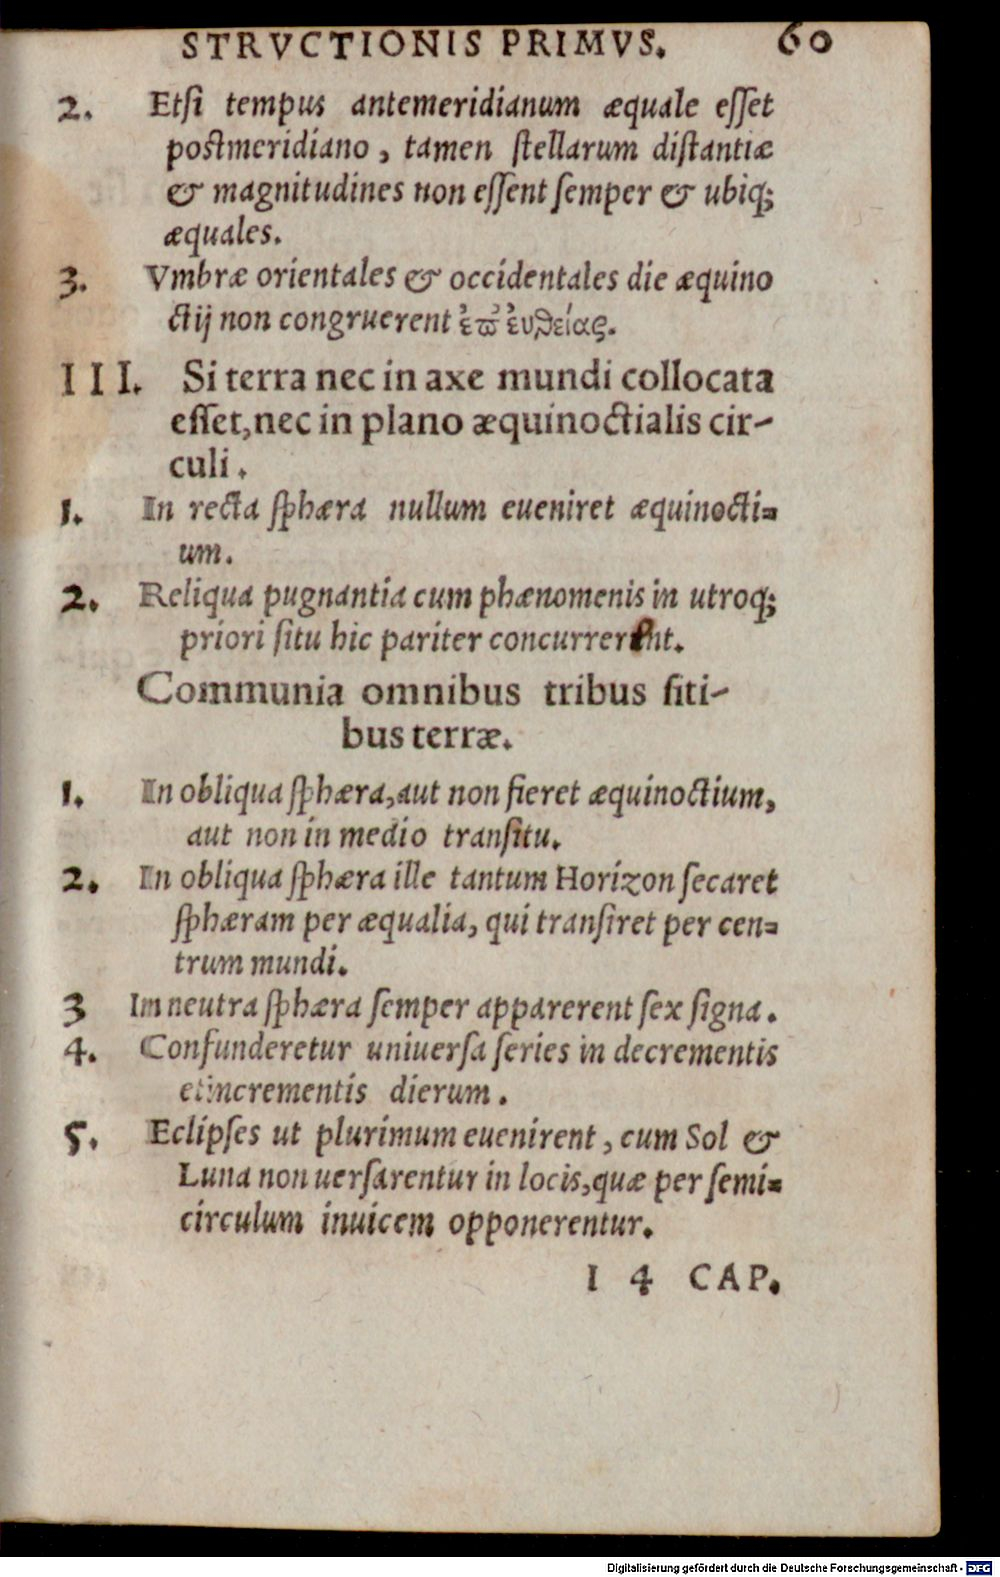 STRVCTIONIS PRIMVS. 60
2. Etſi tempus antemeridianum æquale eſſet
postmeridiano, tamen ſtellarum diſtantiæ
& magnitudines non eſſent ſemper & ubiq;
æquales.
3. Vmbræ orientales & occidentales die æquino
ctij non congruerent ἐπ' ἐυθείας.
III. Si terra nec in axe mundi collocata
eſſet, nec in plano æquinoctialis cir-
culi.
1. In recta ſphæra nullum eueniret æquinocti=
um.
2. Reliqua pugnantia cum phænomenis in utroq;
priori ſitu hic pariter concurrerent.
Communia omnibus tribus ſiti-
bus terræ.
1. In obliqua ſphæra, aut non fieret æquinoctium,
aut non in medio tranſitu.
2. In obliqua ſphæra ille tantum Horizon ſecaret
ſphæram per æqualia, qui tranſiret per cen=
trum mundi.
3 Im neutra ſphæra ſemper apparerent ſex ſigna.
4. Confunderetur uniuerſa ſeries in decrementis
et incrementis dierum.
5. Eclipſes ut plurimum euenirent, cum Sol &
Luna non uerſarentur in locis, quæ per ſemi=
circulum inuicem opponerentur.
I 4 CAP.
Digitalisierung gefördert durch die Deutsche Forschungsgemeinschaft - DFG